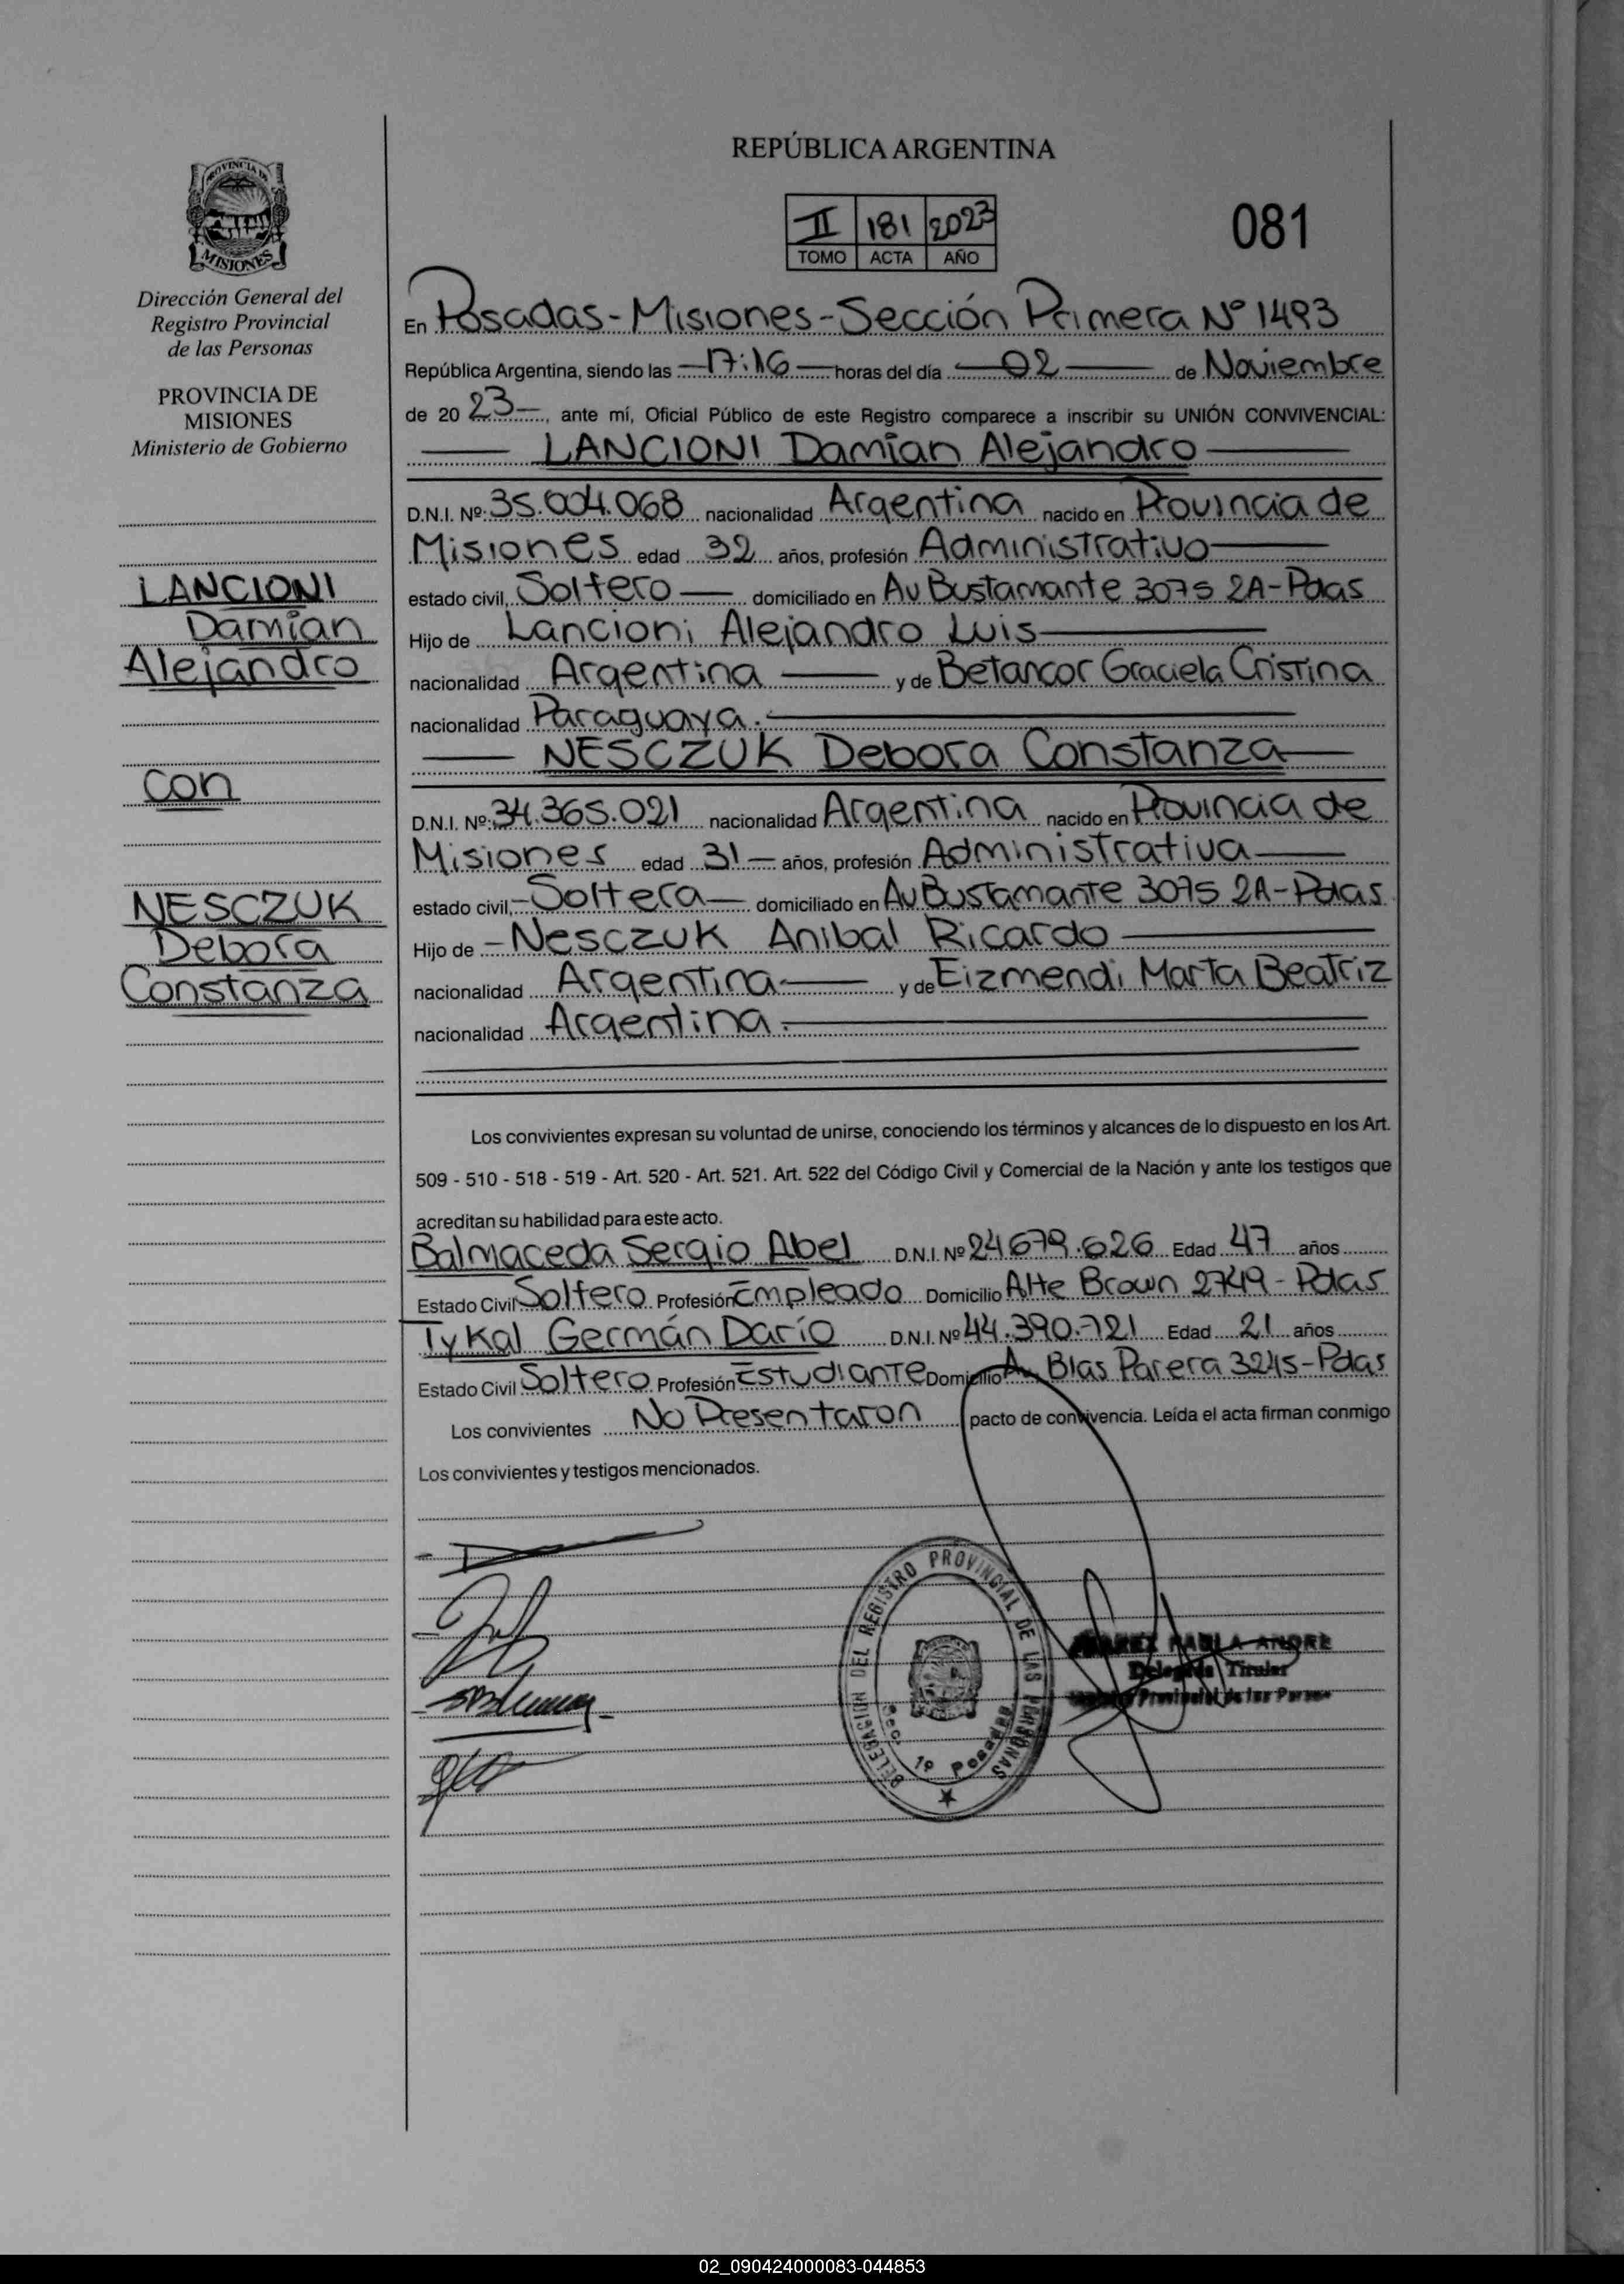 REPÚBLICA ARGENTINA
PROVINCIA DE
MISIONES
II 181 2023
TOMO ACTA AÑO
081
Dirección General del
Registro Provincial
de las Personas
PROVINCIA DE
MISIONES
Ministerio de Gobierno
LANCIONI
Damián
Alejandro
con
NESCZUK
Debora
Constanza
En Posadas - Misiones - Sección Primera Nº 1493
República Argentina, siendo las 17:16 horas del día 02 de Noviembre
de 2023, ante mí, Oficial Público de este Registro comparece a inscribir su UNIÓN CONVIVENCIAL:
LANCIONI Damián Alejandro
D.N.I. Nº: 35.004.068 nacionalidad Argentina nacido en Provincia de
Misiones edad 32 años, profesión Administrativo
estado civil, Soltero domiciliado en Av Bustamante 3075 2A - Pdas
Hijo de Lancioni Alejandro Luis
nacionalidad Argentina y de Betancor Graciela Cristina
nacionalidad Paraguaya.
NESCZUK Debora Constanza
D.N.I. Nº: 34.365.021 nacionalidad Argentina nacido en Provincia de
Misiones edad 31 años, profesión Administrativa
estado civil, Soltera domiciliado en Av Bustamante 3075 2A - Pdas
Hijo de Nesczuk Anibal Ricardo
nacionalidad Argentina y de Eizmendi Marta Beatriz
nacionalidad Argentina.
Los convivientes expresan su voluntad de unirse, conociendo los términos y alcances de lo dispuesto en los Art.
509 - 510 - 518 - 519 - Art. 520 - Art. 521. Art. 522 del Código Civil y Comercial de la Nación y ante los testigos que
acreditan su habilidad para este acto.
Balmaceda Sergio Abel D.N.I. Nº 24.679.626 Edad 47 años
Estado Civil Soltero Profesión Empleado Domicilio Alte Brown 2749 - Pdas
Tykal Germán Darío D.N.I. Nº 44.390.721 Edad 21 años
Estado Civil Soltero Profesión Estudiante Domicilio Av Blas Parera 3245 - Pdas
Los convivientes No Presentaron pacto de convivencia. Leída el acta firman conmigo
Los convivientes y testigos mencionados.
DELEGACION DEL REGISTRO PROVINCIAL DE LAS PERSONAS
Sec. 1º Posadas
Delegada Titular
Provincial de las Personas
02_090424000083-044853